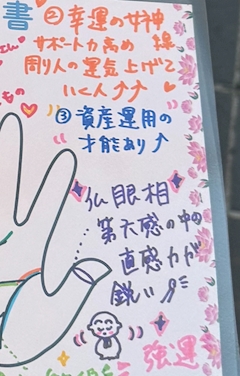 書
②幸運の女神
サポート力高め
周り人の運気上げて
いく人↑↑
③資産運用の
才能あり↑
仏眼相
第六感の中の
直感力が
鋭い
強運